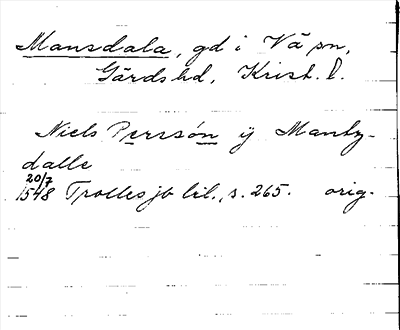 Mansdala, gd i Vä sn,
Gärds hd, Krist. l.
Niels Perssøn ij Mantz-
dalle
20/7
1548 Trolles jb bil., s. 265. orig.